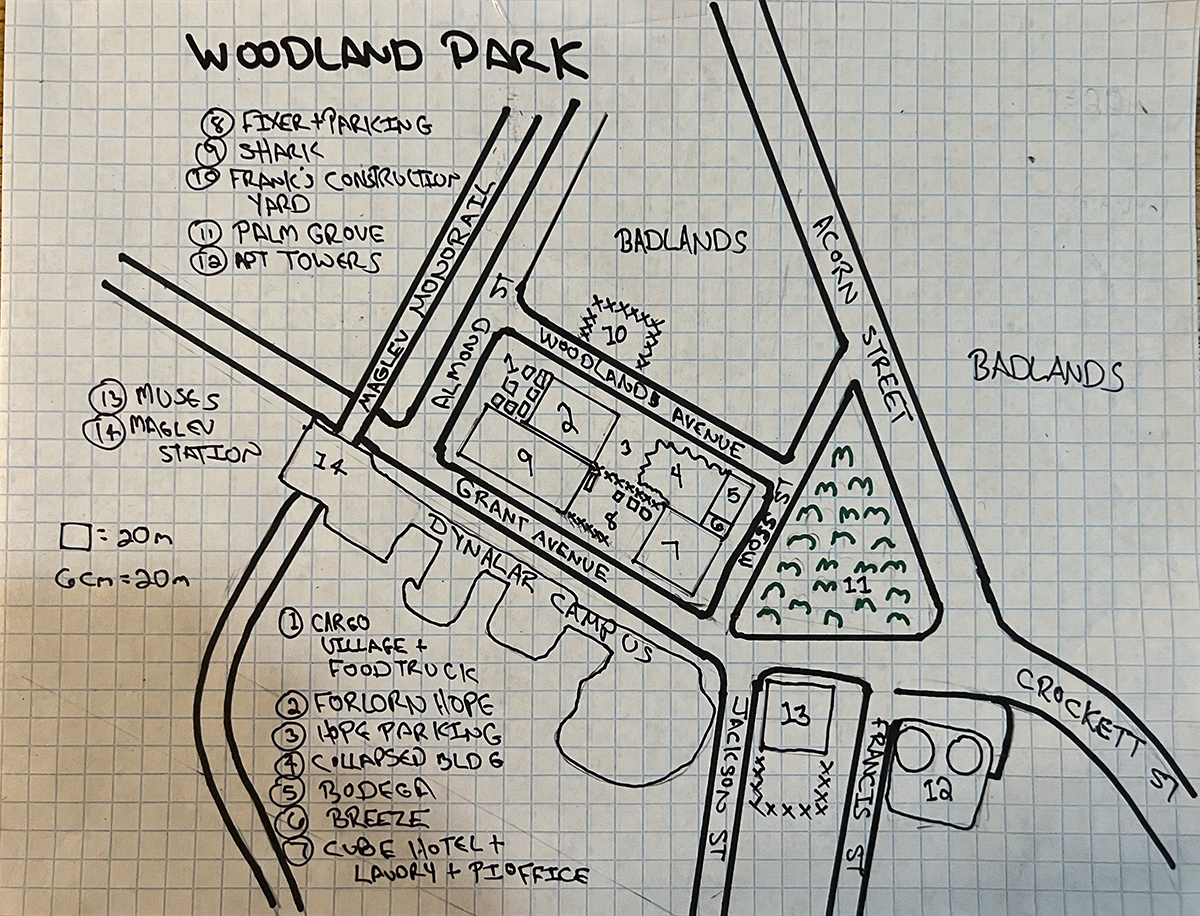 WOODLAND PARK
8 FIXER + PARKING
9 SHARK
10 FRANK'S CONSTRUCTION
YARD
11 PALM GROVE
12 APT TOWERS
MAGLEV MONORAIL
ALMOND ST
BADLANDS
ACORN STREET
10
WOODLANDS AVENUE
BADLANDS
13 MUSES
14 MAGLEV
STATION
1
2
3
4
5
6
7
8
9
14
GRANT AVENUE
MOSS ST
11
DYNALAR CAMPUS
□ = 20m
6cm = 20m
1 CARGO
VILLAGE +
FOOD TRUCK
2 FORLORN HOPE
3 HOPE PARKING
4 COLLAPSED BLDG
5 BODEGA
6 BREEZE
7 CUBE HOTEL +
LAUDRY + PI OFFICE
JACKSON ST
13
FRANCIS ST
12
CROCKETT ST